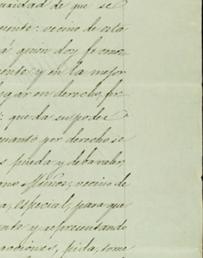 uridad de que se
mento: vecino de esta
á quien doy fe cono
mente y en la mejor
lugar en derecho, for
: que da su poder
cuanto por derecho se
s pueda y deba valer,
Muñoz, vecino de
a, especial, para que
nte y representando
acciones, pida, tome